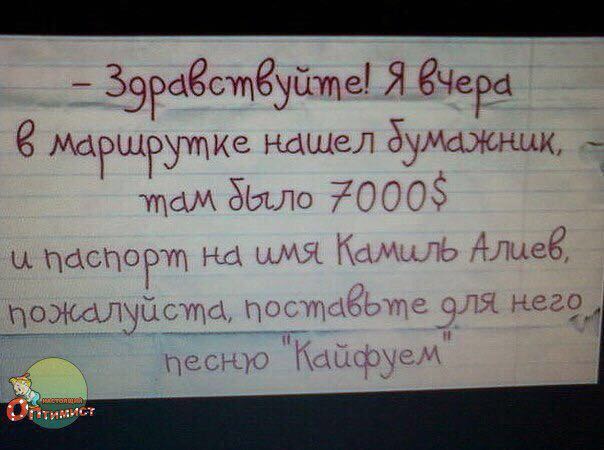 - Здравствуйте! Я вчера
в маршрутке нашел бумажник,
там было 7000$
и паспорт на имя Камиль Алиев,
пожалуйста, поставьте для него
песню "Кайфуем"
НАСТОЯЩИЙ
Оптимист